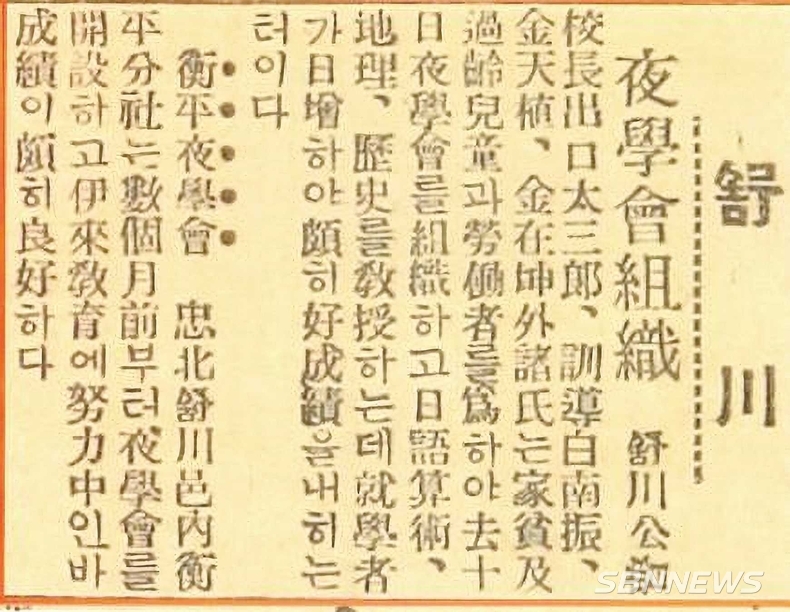 舒川
夜學會組織 舒川公普
校長出口太三郎、訓導白南振、
金天植、金在坤外諸氏는家貧及
過齡兒童과勞働者를爲하야去十
日夜學會를組織하고日語算術、
地理、歷史를敎授하는데就學者
가日增하야頗히好成績을내히는
터이다
衡平夜學會 忠北舒川邑內衡
平分社는數個月前부터夜學會를
開設하고伊來敎育에努力中인바
成績이頗히良好하다
SBNNEWS